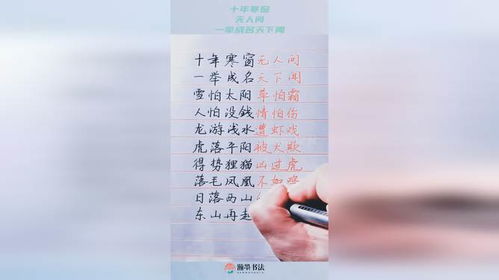 十年寒窗
无人问
一举成名天下闻
十年寒窗无人问
一举成名天下闻
雪怕太阳草怕霜
人怕没钱情怕伤
龙游浅水遭虾戏
虎落平阳被犬欺
得势狸猫凶过虎
落毛凤凰不如鸡
日落西山
东山再起
瀚墨书法